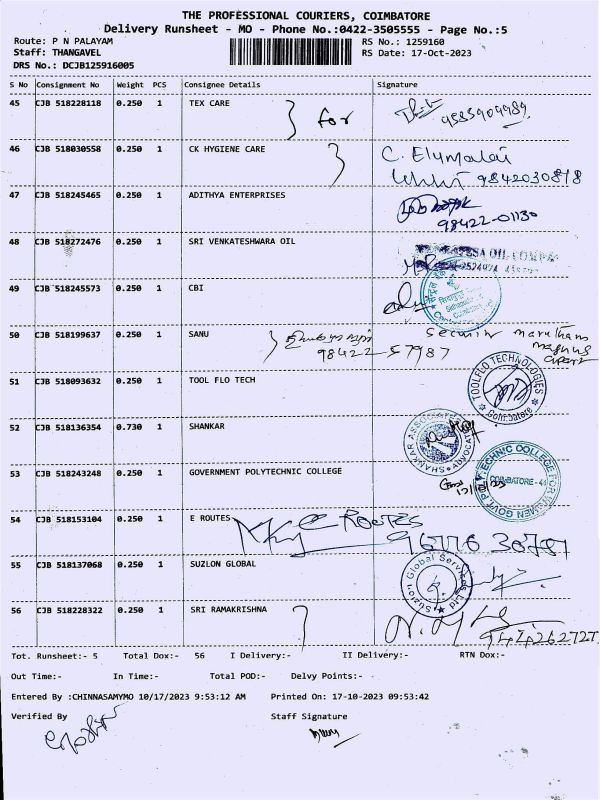 THE PROFESSIONAL COURIERS, COIMBATORE
Delivery Runsheet - MO - Phone No.:0422-3505555 - Page No.:5
Route: P N PALAYAM
RS No.: 1259160
Staff: THANGAVEL
RS Date: 17-Oct-2023
DRS No.: DCJB125916005
S No Consignment No Weight PCS Consignee Details Signature
45 CJB 518228118 0.250 1 TEX CARE for
46 CJB 518030558 0.250 1 CK HYGIENE CARE C. Elumalai
9842030878
47 CJB 518245465 0.250 1 ADITHYA ENTERPRISES
98422-01130
48 CJB 518272476 0.250 1 SRI VENKATESHWARA OIL
49 CJB 518245573 0.250 1 CBI
50 CJB 518199637 0.250 1 SANU
98422-57987
51 CJB 518093632 0.250 1 TOOL FLO TECH TOOLFLO TECHNOLOGIES
Coimbatore
52 CJB 518136354 0.730 1 SHANKAR
53 CJB 518243248 0.250 1 GOVERNMENT POLYTECHNIC COLLEGE
54 CJB 518153104 0.250 1 E ROUTES e Routes
55 CJB 518137068 0.250 1 SUZLON GLOBAL Suzlon Global Services Ltd
56 CJB 518228322 0.250 1 SRI RAMAKRISHNA
Tot. Runsheet:- 5 Total Dox:- 56 I Delivery:- II Delivery:- RTN Dox:-
Out Time:- In Time:- Total POD:- Delvy Points:-
Entered By :CHINNASAMYMO 10/17/2023 9:53:12 AM Printed On: 17-10-2023 09:53:42
Verified By Staff Signature